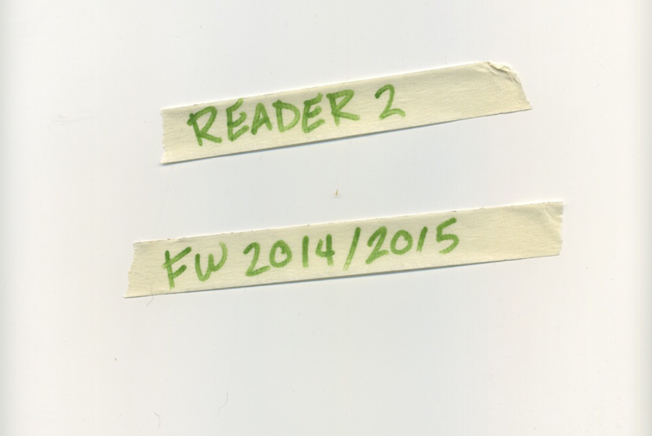 READER 2
FW 2014/2015